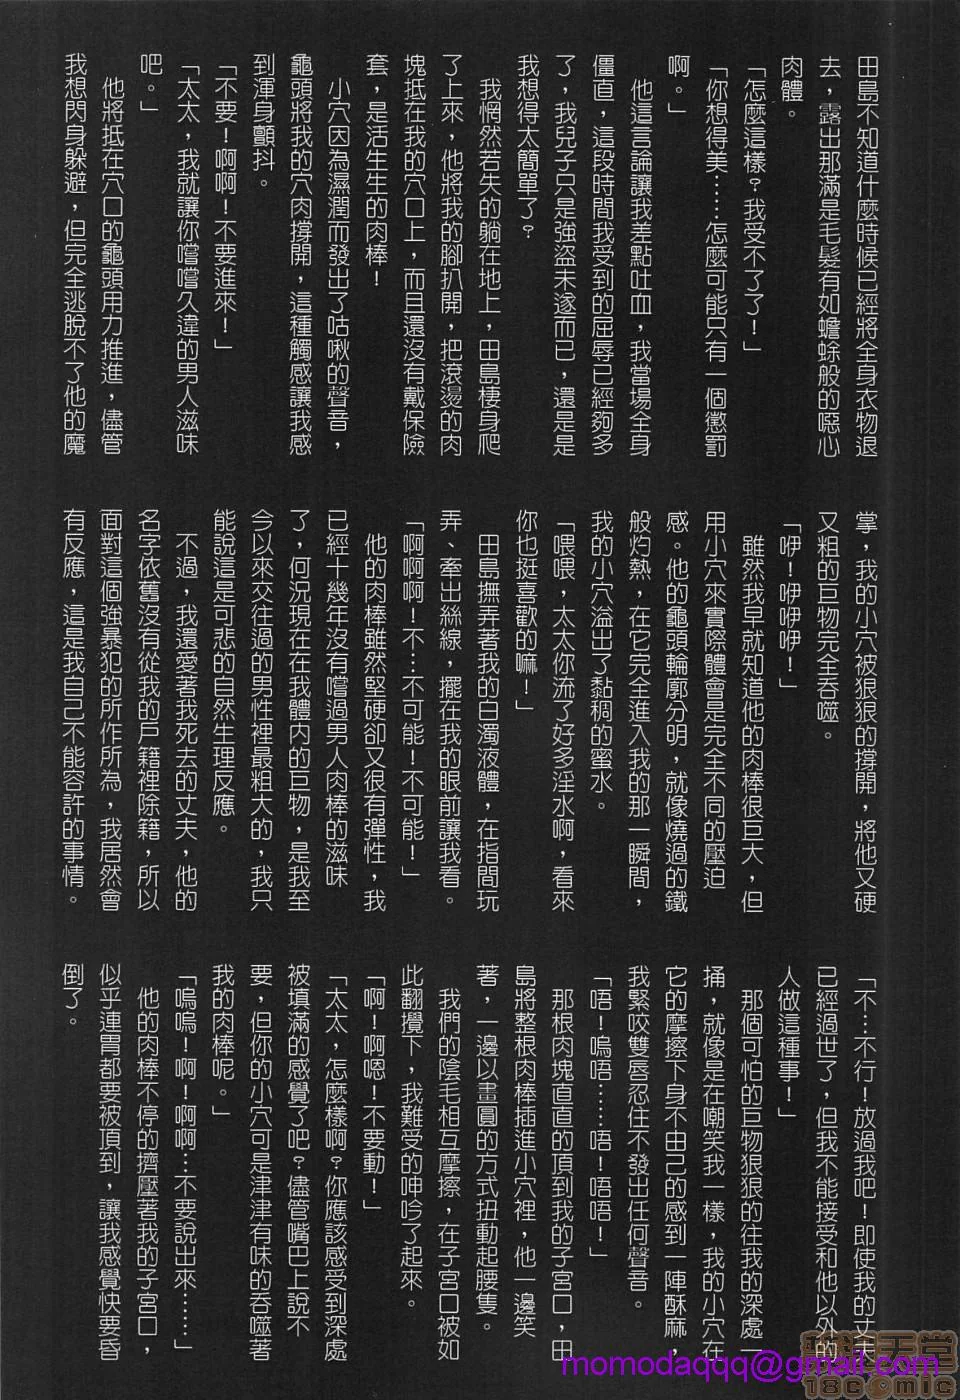 田島不知道什麼時候已經將全身衣物退
去，露出那滿是毛髮有如蟾蜍般的噁心
肉體。
「怎麼這樣？我受不了了！」
「你想得美……怎麼可能只有一個懲罰
啊。」
他這言論讓我差點吐血，我當場全身
僵直，這段時間我受到的屈辱已經夠多
了，我兒子只是強盜未遂而已，還是是
我想得太簡單了？
我惘然若失的躺在地上，田島棲身爬
了上來，他將我的腳扒開，把滾燙的肉
塊抵在我的穴口上，而且還沒有戴保險
套，是活生生的肉棒！
小穴因為濕潤而發出了咕啾的聲音，
龜頭將我的穴肉撐開，這種觸感讓我感
到渾身顫抖。
「不要！啊啊！不要進來！」
「太太，我就讓你嚐嚐久違的男人滋味
吧。」
他將抵在穴口的龜頭用力推進，儘管
我想閃身躲避，但完全逃脫不了他的魔
掌，我的小穴被狠狠的撐開，將他又硬
又粗的巨物完全吞噬。
「咿！咿咿咿！」
雖然我早就知道他的肉棒很巨大，但
用小穴來實際體會是完全不同的壓迫
感。他的龜頭輪廓分明，就像燒過的鐵
般灼熱，在它完全進入我的那一瞬間，
我的小穴溢出了黏稠的蜜水。
「喂喂，太太你流了好多淫水啊，看來
你也挺喜歡的嘛！」
田島撫弄著我的白濁液體，在指間玩
弄、牽出絲線，擺在我的眼前讓我看。
「啊啊啊！不…不可能！不可能！」
他的肉棒雖然堅硬卻又很有彈性，我
已經十幾年沒有嚐過男人肉棒的滋味
了，何況現在在我體內的巨物，是我至
今以來交往過的男性裡最粗大的，我只
能說這是可悲的自然生理反應。
不過，我還愛著我死去的丈夫，他的
名字依舊沒有從我的戶籍裡除籍，所以
面對這個強暴犯的所作所為，我居然會
有反應，這是我自己不能容許的事情。
「不…不行！放過我吧！即使我的丈夫
已經過世了，但我不能接受和他以外的
人做這種事！」
那個可怕的巨物狠狠的往我的深處一
捅，就像是在嘲笑我一樣，我的小穴在
它的摩擦下身不由己的感到一陣酥麻，
我緊咬雙唇忍住不發出任何聲音。
「唔！嗚唔……唔！唔唔！」
那根肉塊直直的頂到我的子宮口，田
島將整根肉棒插進小穴裡，他一邊笑
著，一邊以畫圓的方式扭動起腰隻。
我們的陰毛相互摩擦，在子宮口被如
此翻攪下，我難受的呻吟了起來。
「啊！啊嗯！不要動！」
「太太，怎麼樣啊？你應該感受到深處
被填滿的感覺了吧？儘管嘴巴上說不
要，但你的小穴可是津津有味的吞噬著
我的肉棒呢。」
「嗚嗚！啊！啊啊…不要說出來……」
他的肉棒不停的擠壓著我的子宮口，
似乎連胃都要被頂到，讓我感覺快要昏
倒了。
momodaqqq@gmail.com
18COMIC